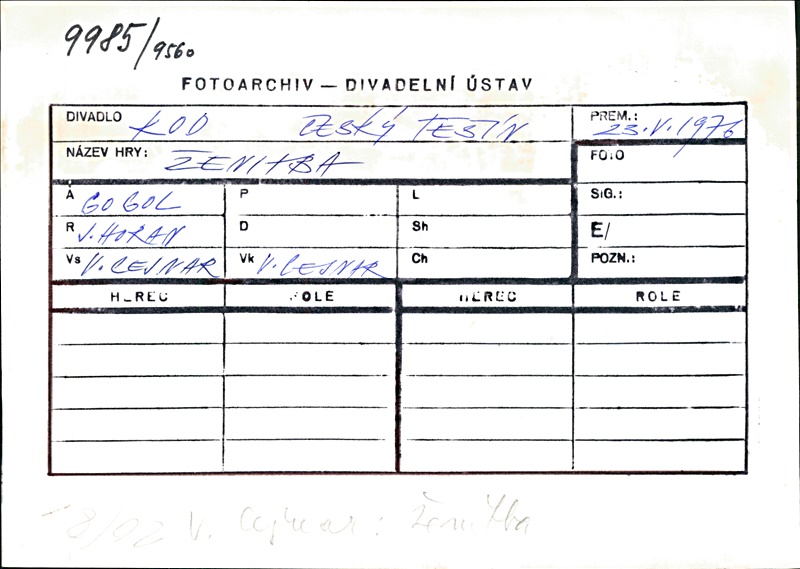 9985/9560
FOTOARCHIV — DIVADELNÍ ÚSTAV
DIVADLO KOD ČESKÝ TEŠÍN PREM.: 23.V.1976
NÁZEV HRY: ŽENITBA FOTO
A GOGOL P L SIG.:
R J. HORAN D Sh E/
Vs V. CEJNAR Vk V. CEJNAR Ch POZN.:
HEREC ROLE HEREC ROLE
V. Cejnar: Ženitba